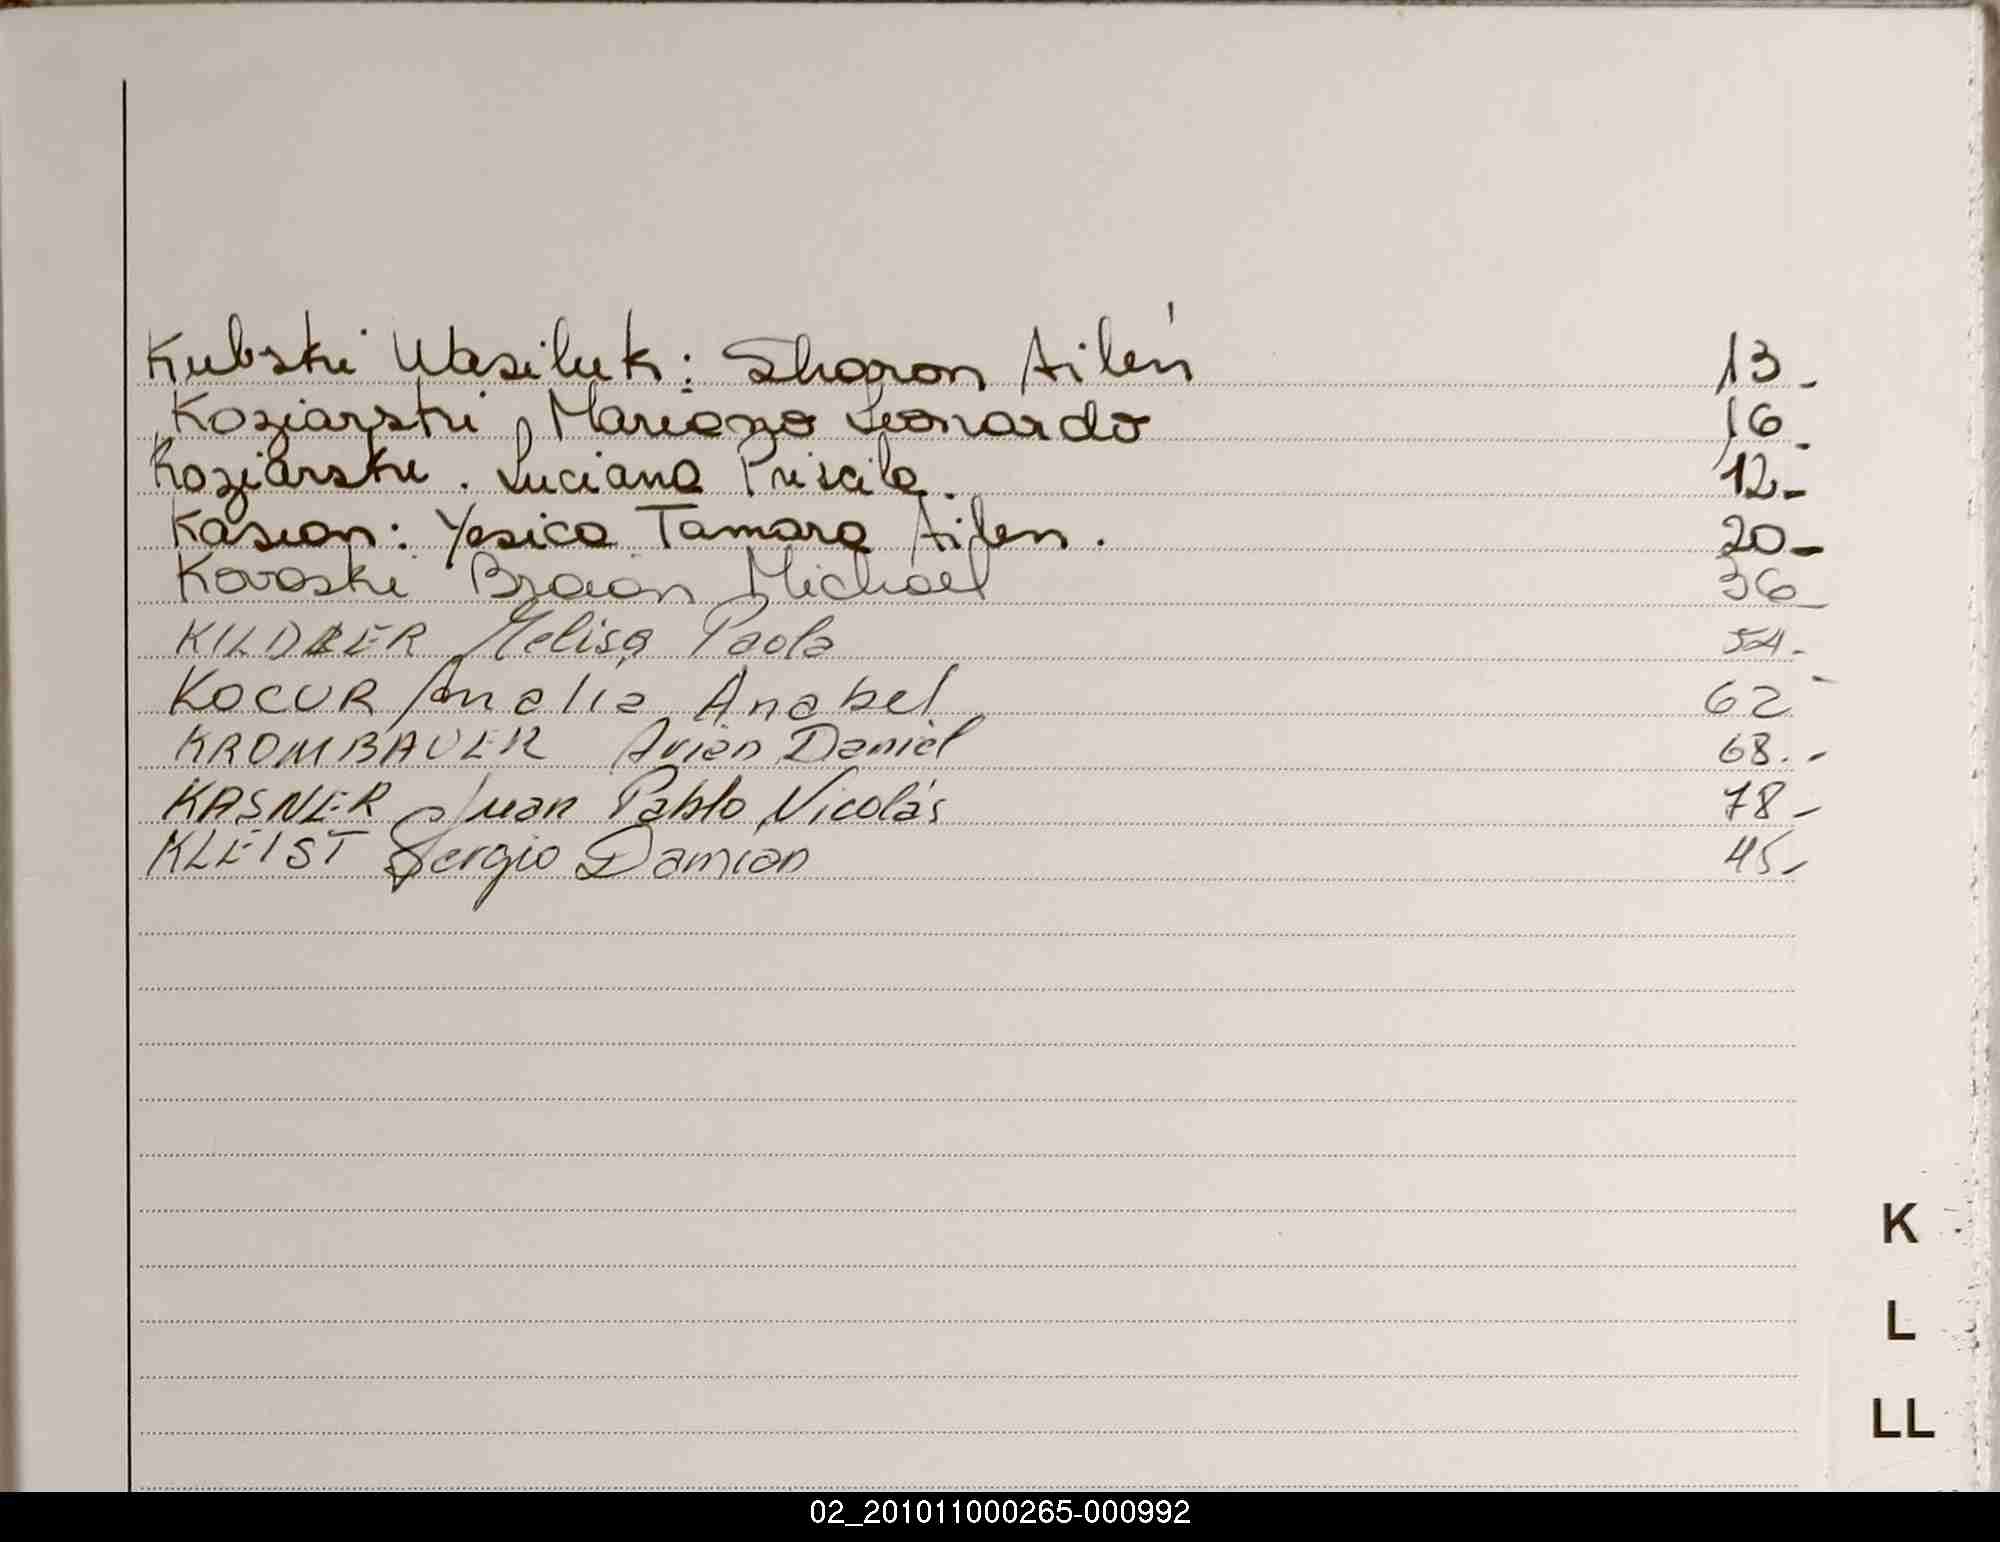 Kubski Wasiluk: Sharon Ailén 13-
Koziarski, Mariano Leonardo 16-
Koziarski. Luciana Priscila. 12-
Kasion: Yesica Tamara Ailen. 20-
Kovaski Braian Michael 36-
KILDER Melisa Paola 54.-
KOCUR Analia Anabel 62-
KROMBAUER Arien Daniel 68.-
KASNER Juan Pablo Nicolás 78-
KLEIST Sergio Damian 45-
K
L
LL
02_201011000265-000992